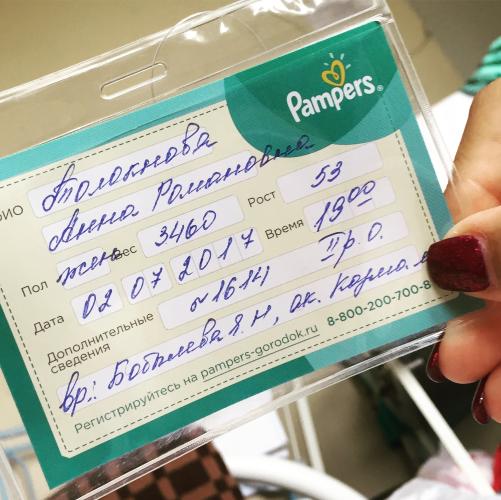 Pampers
ФИО Аполокнова
Анна Романовна
Пол жен Вес 3460 Рост 53
Дата 02 07 2017 Время 13 00
Дополнительные сведения ~1614 II р. О.
вр.: Я.Н, ак.
Регистрируйтесь на pampers-gorodok.ru 8-800-200-700-8